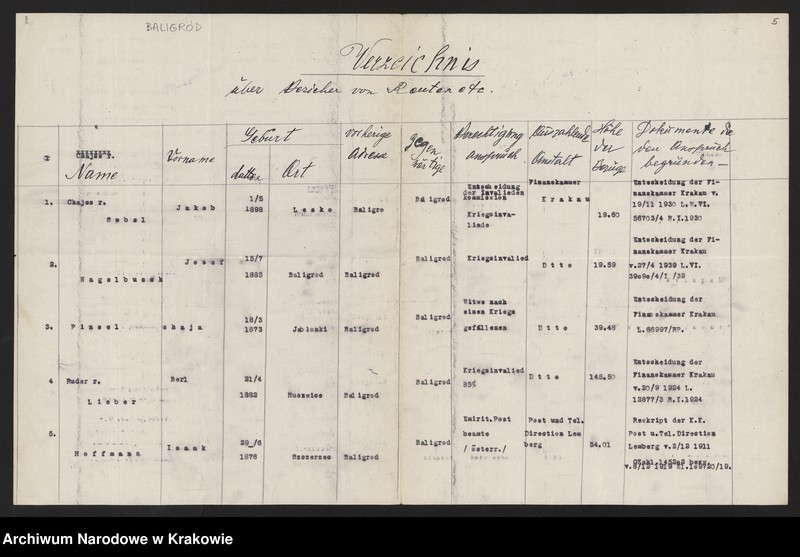 1.
BALIGRÓD
5
Verzeichnis
über Bezieher von Renten etc.
Name
Vorname
Geburt
datum
Ort
vorherige
Adresse
gegen
wärtige
Berechtigung
Anspruch
Auszahlende
Anstalt
Höhe
der
Bezüge
Dokumente die
den Anspruch
begründen —
1.
Chajes r.
Sebel
Jakob
1/5
1898
Lesko
Baligro
Baligrod
Entscheidung
der Invaliden
kommission
Kriegsinva-
lide
Finanzkammer
Krakau
19.60
Entscheidung der Fi-
nanzkammer Krakau v.
19/11 1930 L.B.VI.
56703/4 R.I.1930
2.
Nagelbusch
Josef
15/7
1885
Baligrod
Baligrod
Baligrod
Kriegsinvalied
Dtto
19.59
Entscheidung der Fi-
nanzkammer Krakau
v.27/4 1939 L.VI.
/39
3.
Pinsel
chaja
18/3
1873
Jablonki
Baligrod
Baligrod
Witwe nach
einen Kriegs
gefallenen
Dtto
39.48
Entscheidung der
Finanzkammer Krakau
L.66997/RP.
4
Ruder r.
Lieber
Berl
21/4
1882
Huzewice
Baligrod
Baligrod
Kriegsinvalied
85%
Dtto
145.50
Entscheidung der
Finanzkammer Krakau
v.20/9 1924 L.
12877/3 R.I.1924
5.
Hoffmann
Isaak
29_/6
1876
Szczerzec
Baligrod
Baligrod
Emirit.Post
beamte
/österr./
Post und Tel.
Direction Lem
berg
54.01
Reskript der K.K.
Post u.Tel.Direction
Lemberg v.2/12 1911
Archiwum Narodowe w Krakowie